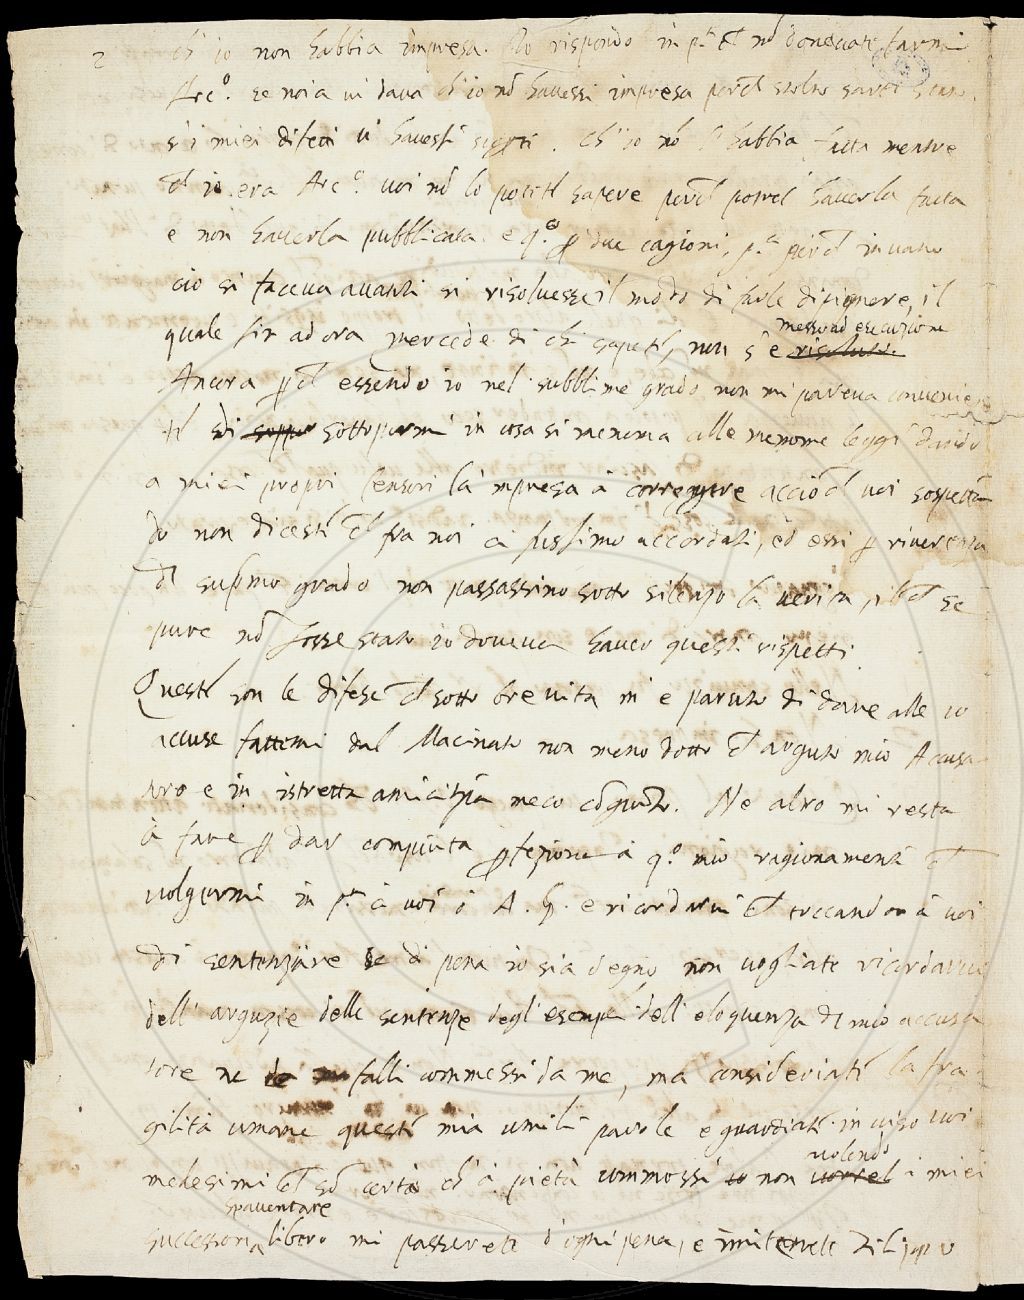 2 ch' io non habbia impresa. Io rispondo in p.ª ch nō dovevate farmi
Arc.º se noia vi dava ch'io nō havessi impresa perch
s' i miei difetti vi havesti scoperti. Ch' io nō l' habbia fatta mentre
ch io era Arc.º voi nō lo potete sapere perch potrei haverla fatta
e non haverla pubblicata. e q.º p due cagioni, p.ª perch invano
ciò si faceva avanti si risolvesse il modo di farle dipignere, il
quale sin ad ora mercede di chi sapete, non s' è risoluto. messo ad esecuzione
Ancora p ch essendo io nel subblime grado non mi pareva convenie
te di soppor sottopormi in cosa si menoma alle menome leggi dando
a miei propri Censori la 'mpresa à correggere acciò ch voi sospettā
do non dicesti ch fra noi ci fussimo accordati, ed essi p riverenza
di supmo grado non passassino sotto silenzio la verità, se
pure nō fosse stato io doveva haver questi rispetti.
Queste son le difese ch sotto brevità m' è paruto di dare alle
accuse fattemi dal Macinato non meno dotto ch arguto mio Accusa
tore e in istretta amicitzia meco cōgiunto. Ne altro mi resta
à fare p dar compiuta pfezione à q.º mio ragionamento ch
volgermi in p.ª à voi ò A. C. e ricordarvi ch toccando à voi
di sentenziare se di pena io sia degno, non vogliate ricordarvi
dell' arguzie delle sentenze degl' esempi dell' eloquenza di mio accusa
tore ne falli commessi da me, ma consideriate la fra
gilità umana queste mia umili parole e guardiate in viso voi
medesimi ch sō certo ch' à pietà commossi io non vorrei volendo i miei
successori spaventare libero mi passerete d'ogni pena, e imiterete